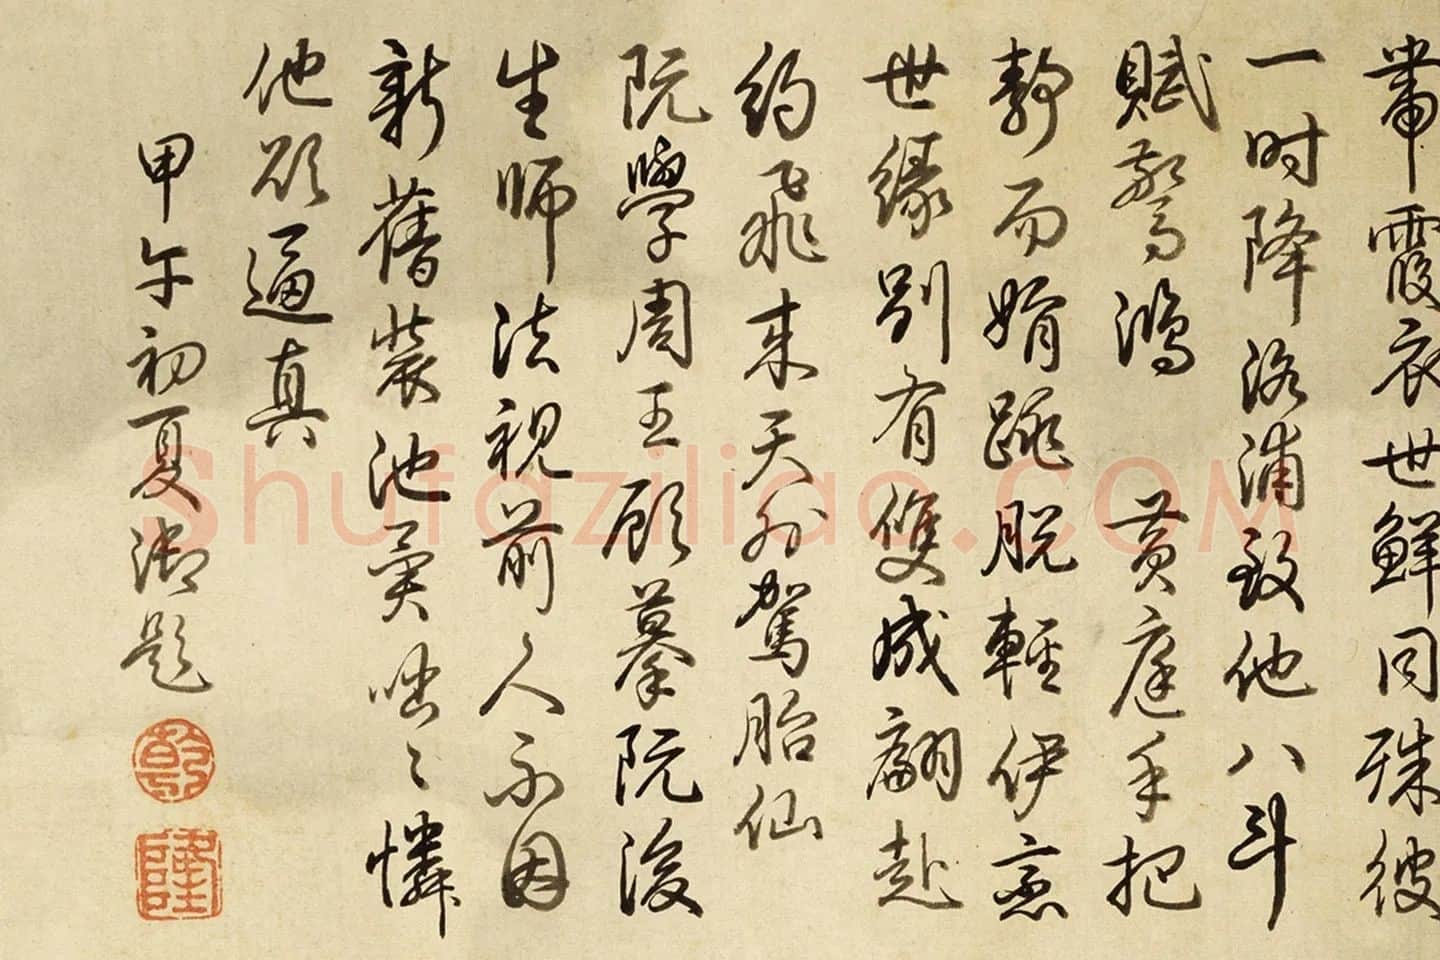 帶霞衣世鮮同殊彼
一时降洛浦致他八斗
賦驚鴻 黄庭手把
靜而娟跳脫輕伊意
世緣别有雙成翩赴
約飛來天外駕胎仙
阮學周王顧摹阮後
生師法視前人不因
新舊裝池異咄〻憐
他欲逼真
甲午初夏御題
乾
隆
Shufaziliao.COM